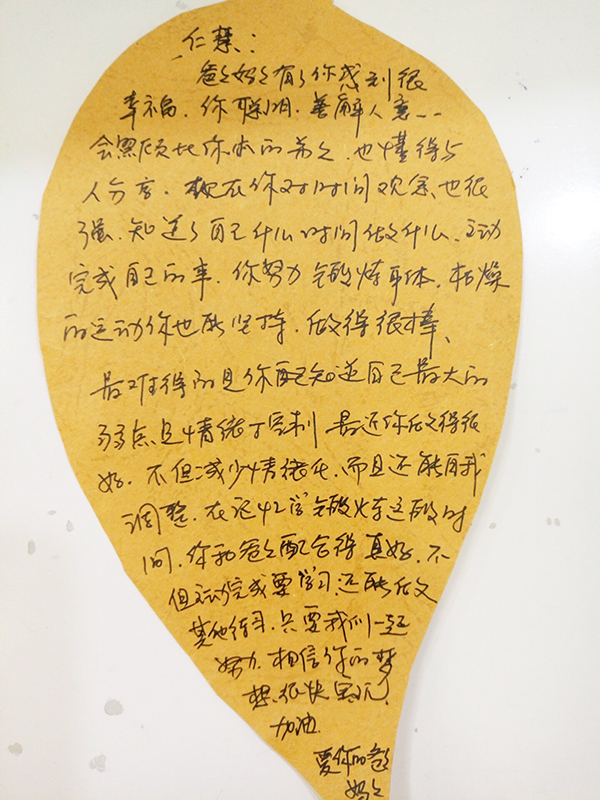 仁慧：
爸爸妈妈有了你感到很
幸福。你聪明、善解人意……
会照顾比你小的弟弟，也懂得与
人分享。现在你对时间观念也很
强，知道了自己什么时间做什么，主动
完成自己的事。你努力锻炼身体，枯燥
的运动你也能坚持，做得很棒、
最难得的是你已知道自己最大的
弱点是情绪控制 最近你做得很
好。不但减少情绪化，而且还能自我
调整。在记忆学锻炼这段时
间，你和爸爸配合得真好，不
但主动完成要学习，还能做
其他练习。只要我们一起
努力，相信你的梦
想很快实现，
加油。
爱你的爸爸
妈妈